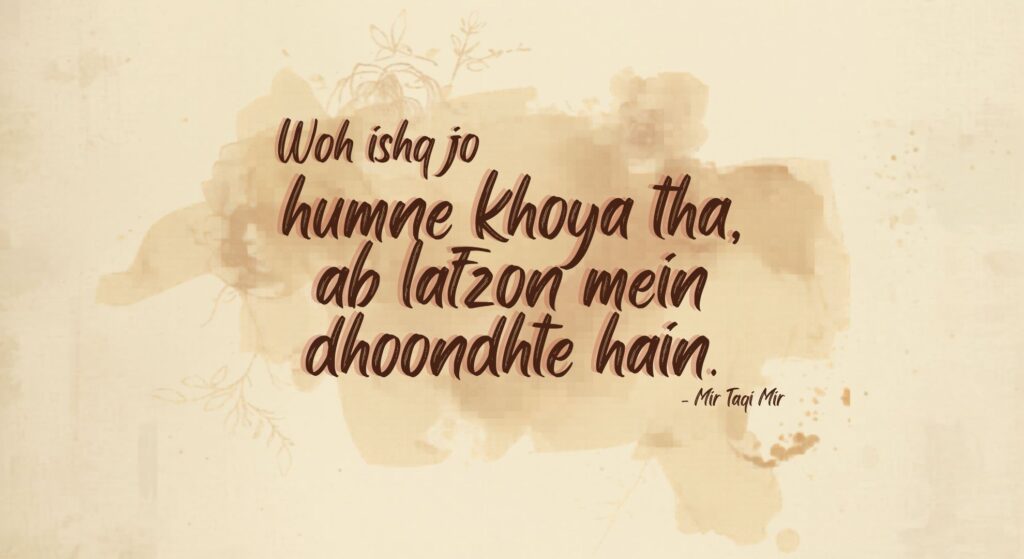 Woh ishq jo
humne khoya tha,
ab lafzon mein
dhoondhte hain.
- Mir Taqi Mir